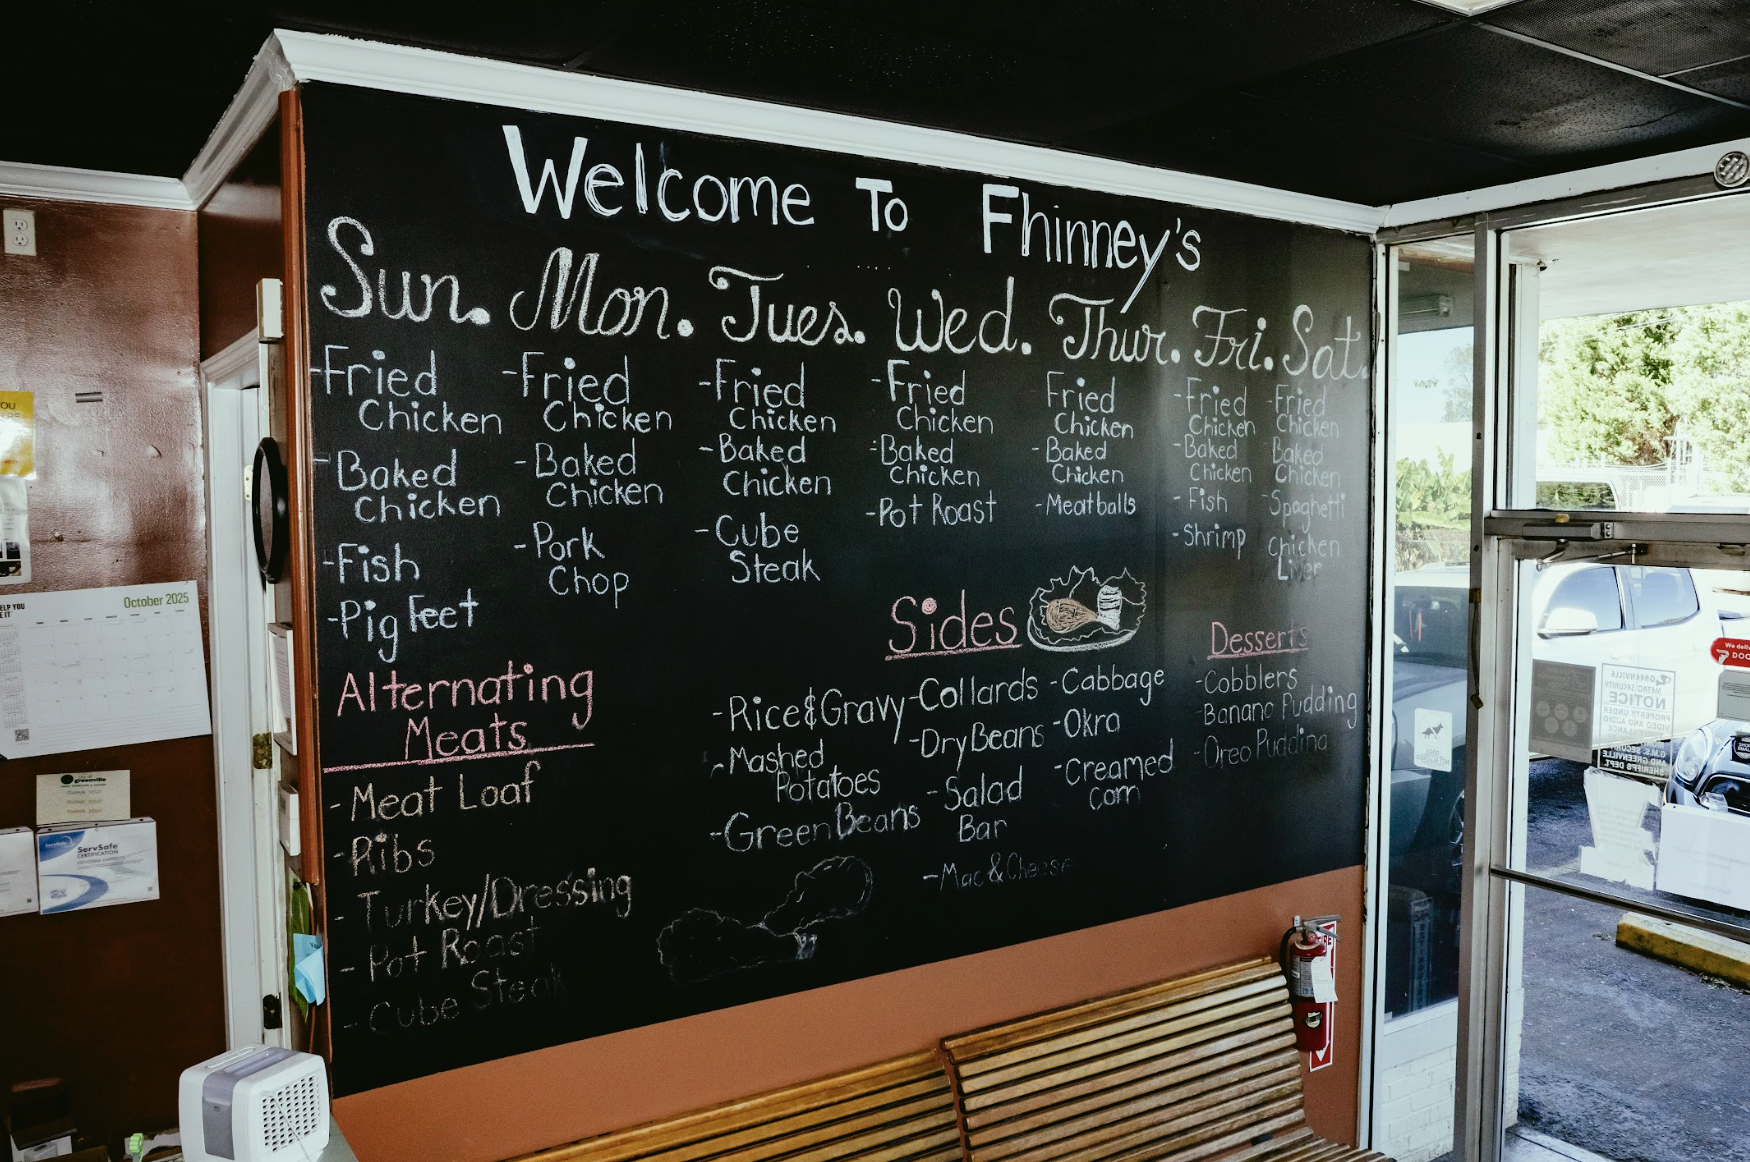 Welcome To Fhinney's
Sun. Mon. Tues. Wed. Thur. Fri. Sat.
-Fried
Chicken
-Baked
Chicken
-Fish
-Pig Feet
-Fried
Chicken
-Baked
Chicken
-Pork
Chop
-Fried
Chicken
-Baked
Chicken
-Cube
Steak
-Fried
Chicken
-Baked
Chicken
-Pot Roast
Fried
Chicken
-Baked
Chicken
-Meatballs
-Fried
Chicken
-Baked
Chicken
-Fish
-Shrimp
-Fried
Chicken
Baked
Chicken
-Spaghetti
Chicken
Liver
Alternating
Meats
-Meat Loaf
-Ribs
-Turkey/Dressing
-Pot Roast
-Cube Steak
Sides
-Rice&Gravy
-Mashed
Potatoes
-Green Beans
-Collards
-Dry Beans
-Salad
Bar
-Mac & Cheese
-Cabbage
-Okra
-Creamed
Corn
Desserts
-Cobblers
-Banana Pudding
-Oreo Pudding
October 2025
greenville
ServSafe
CERTIFICATION
We deliv
DOO
GREENVILLE
METRO SECURITY
NOTICE
PROPERTY UNDER
VIDEO AND AUDIO
AND GREENVILLE
SHERIFFS DEPT.